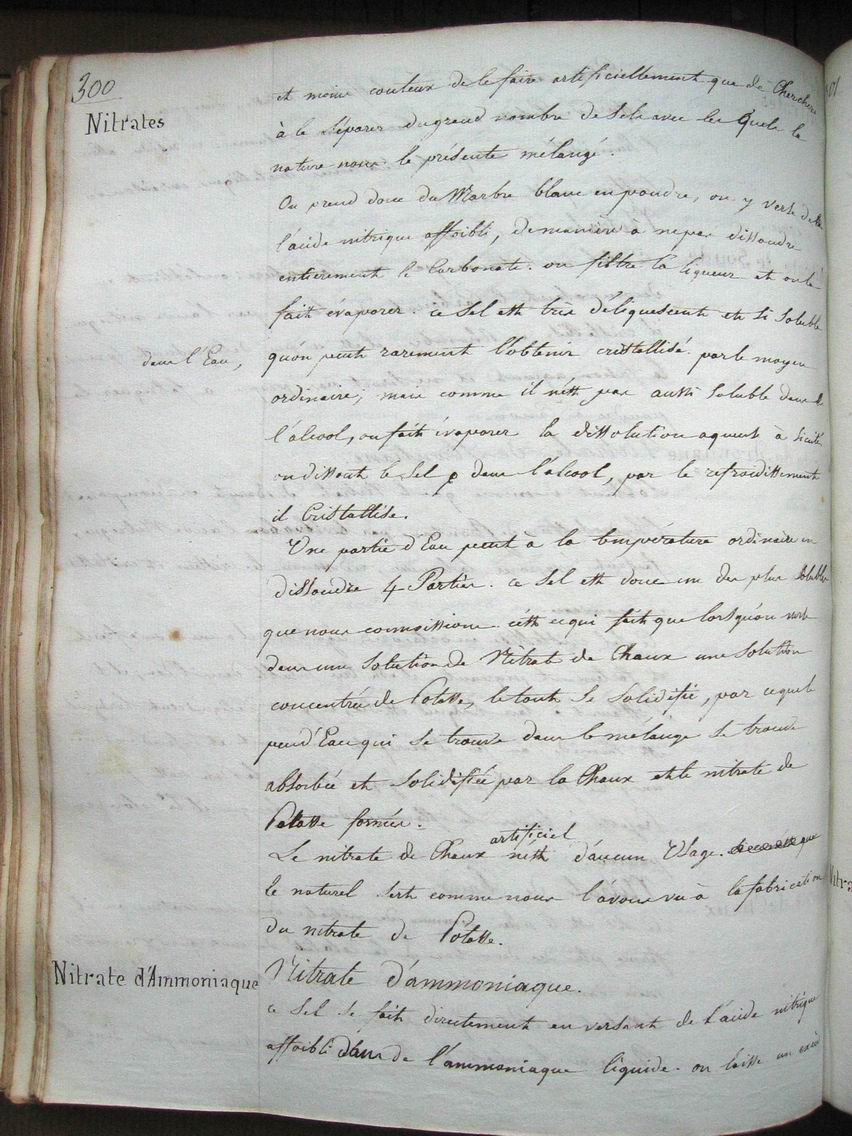 300
Nitrates
et moins couteux de le faire artificiellement que de Chercher
à le séparer du grand nombre de sels avec les quels la
nature nous le présente mélangé.
On prend donc du Marbre blanc en poudre, on y verse de
l'acide nitrique affoibli, de manière à ne pas dissoudre
entierement le Carbonate. on filtre la liqueur et on la
fait évaporer. ce sel est très deliquescent et si soluble
dans l'Eau,
qu'on peut rarement l'obtenir cristallisé par le moyen
ordinaire; mais comme il n'est pas aussi soluble dans
l'alcool, on fait évaporer la dissolution aqueuse à siccité
on dissout le sel dans l'alcool, par le refroidissement
il Cristallise.
Une partie d'Eau peut à la température ordinaire en
dissoudre 4 Parties. ce sel est donc un des plus solubles
que nous connoissions. c'est ce qui fait que lorsqu'on verse
dans une solution de Nitrate de Chaux une solution
concentrée de Potasse, le tout se solidifie, par ce que le
peu d'Eau qui se trouve dans le mélange se trouve
absorbée et solidifiée par la Chaux et le nitrate de
Potasse formés.
Le nitrate de Chaux artificiel n'est d'aucun Usage. que
le naturel sert comme nous l'avons vu à la fabrication
du nitrate de Potasse.
Nitrate d'Ammoniaque
Nitrate d'ammoniaque.
ce sel se fait directement en versant de l'acide nitrique
affoibli dans de l'ammoniaque liquide. on laisse un excès